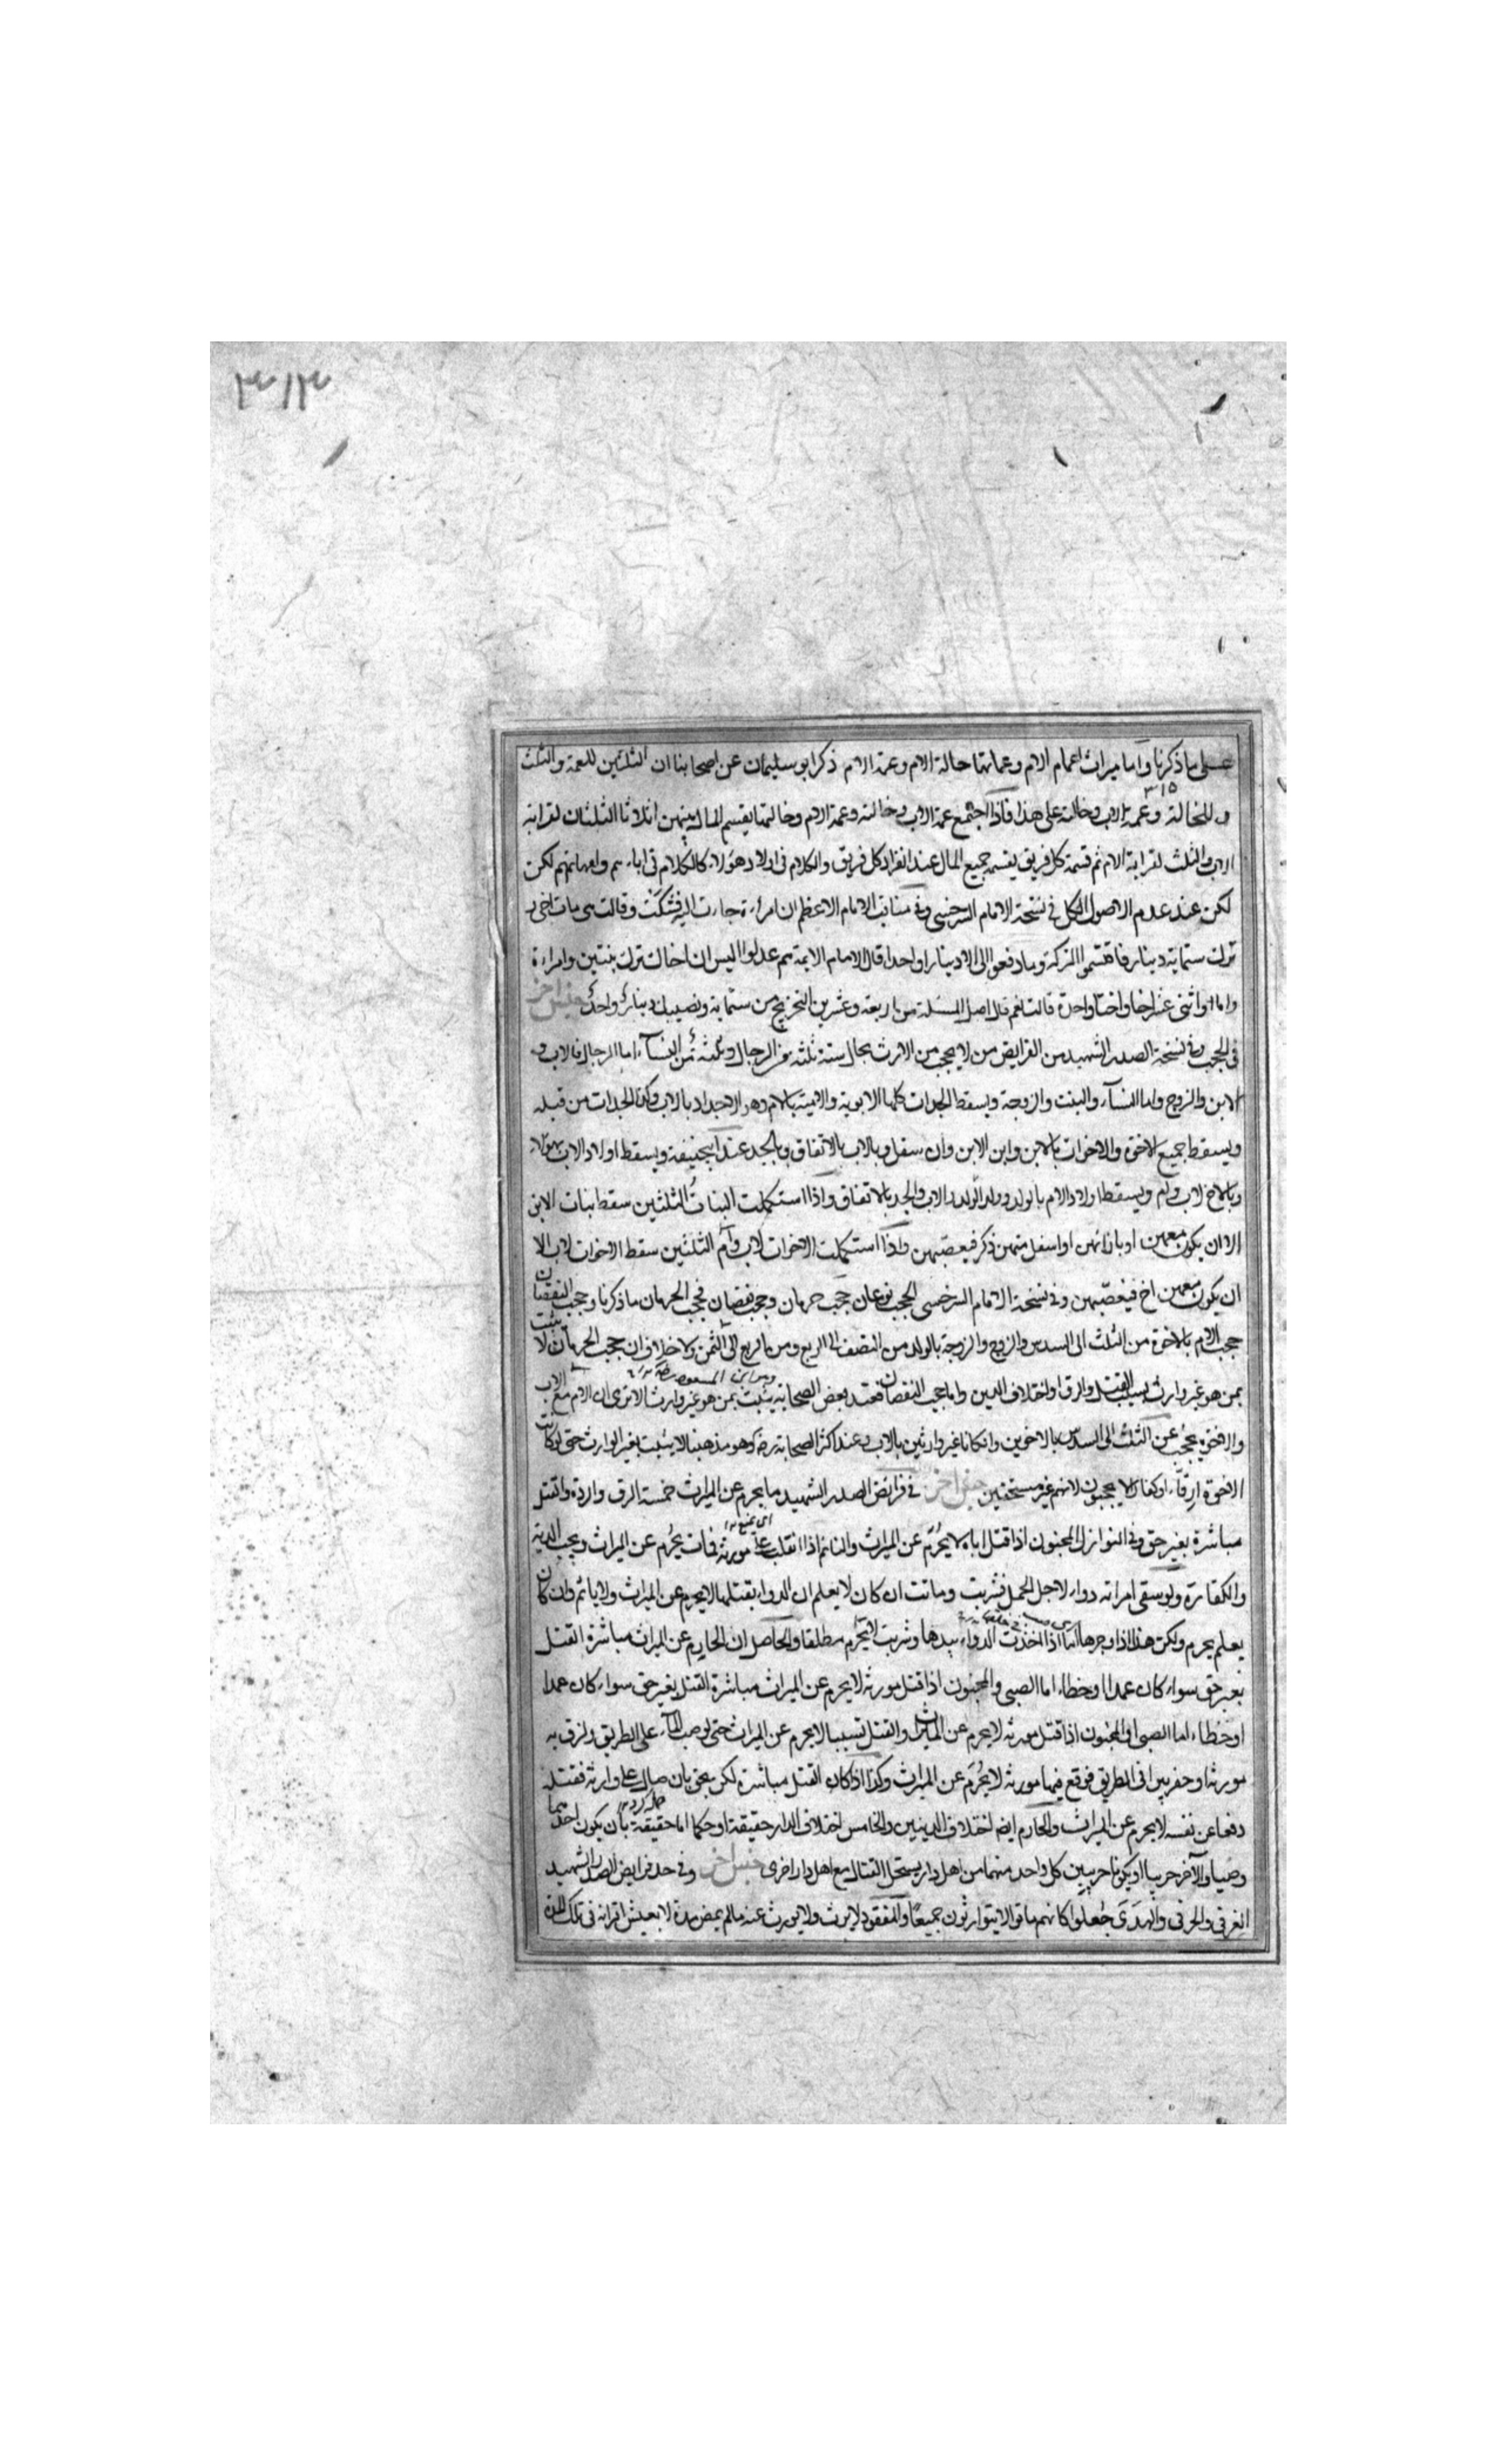 ٣١٣
على ما ذكرنا واما ميراث اعمام الام وعماتها خالة الام وعمة الام ذكر ابو سليمان عن اصحابنا ان الثلثين للعمة والثلث
٣١٥
للخالة وعمة الاب وخالته على هذا فاذا اجتمع عمة الاب وخالته وعمة الام وخالتها يقسم المال بينهن اثلاثا الثلثان لقرابة
الاب والثلث لقرابة الام ثم قسمة كل فريق يقسم جميع المال عند انفراد كل فريق والكلام فى اولاد هؤلاء كالكلام فى اباءهم وامهاتهم لكن
لكن عند عدم الاصول الكل فى نسخة الامام السرخسى وفى مناقب الامام الاعظم ان امرأة جاءت اليه فشكت وقالت مات اخى و
ترك ستماية دينار فاقتسموا التركة وما دفعوا الى الا دينارا واحدا قال الامام الايمة هم عدلوا اليس ان اخاك ترك بنتين وامراءة
واما واثنى عشر اخا واختا واحدة قالت نعم قال اصل المسئلة من اربعة وعشرين التخريج من ستماية ونصيبك دينار واحد جنس اخر
فى الحجب وفى نسخة الصدر الشهيد من الفرايض من لا يحجب من الارث بحال ستة ثلثة من الرجال وثلثة من النسآء اما الرجال فالاب و
الابن والزوج واما النسآء والبنت والزوجة ويسقط الجدات كلها الابوية والامية بالام وهو الاجداد بالاب وكذا الجدات من قبله
ويسقط جميع الاخوة والاخوات بالابن وابن الابن وان سفل وبالاب بالاتفاق وبالجد عند ابيحنيفة ويسقط اولاد الاب بهولاء
وبالاخ لاب وام ويسقط اولاد الام بالولد وولد الولد والاب والجد بالاتفاق واذا استكملت البنات الثلثين سقط بنات الابن
الا ان يكون معهن او بازائهن او اسفل منهن ذكر فيعصبهن واذا استكملت الاخوات لاب وام الثلثين سقط الاخوات لاب الا
ان يكون معهن اخ فيعصبهن وفى نسخة الامام السرخسى الحجب نوعان حجب حرمان وحجب نقصان فحجب الحرمان ما ذكرنا وحجب النقصان
حجب الام بالاخوة من الثلث الى السدس والزوج والزوجة بالولد من النصف الى الربع ومن الربع الى الثمن ولا خلاف ان حجب الحرمان لا يثبت
بمن هو غير وارث بسبب القتل والرق او اختلاف الدين واما حجب النقصان فعند بعض الصحابة يثبت بمن هو غير وارث الا ترى ان الام مع الاب
والاخوة يحجب عن الثلث الى السدس بالاخوين وان كانا غير وارثين بالاب وعند اكثر الصحابة رض وهو مذهبنا لا يثبت بغير الوارث حتى لو كانت
الاخوة ارقآء او كفارا لا يحجبون لانهم غير مستحقين جنس اخر فى فرايض الصدر الشهيد ما يحرم عن الميراث خمسة الرق والردة والقتل
مباشرة بغير حق وفى النوازل المجنون اذا قتل اباه لا يحرم عن الميراث والنائم اذا انقلب على مورثه فمات يحرم عن الميراث ويجب الدية
والكفارة ولو سقى امراته دواء لاجل الحمل فشربت وماتت ان كان لا يعلم ان الدواء يقتلها لا يحرم عن الميراث ولا ياثم وان كان
يعلم يحرم ولكن هذا اذا اوجرها اما اذا اخذت الدواء بيدها وشربت لا يحرم مطلقا والحاصل ان الحارم عن الميراث مباشرة القتل
بغير حق سواء كان عمدا او خطاء اما الصبى والمجنون اذا قتل مورثه لا يحرم عن الميراث مباشرة القتل بغير حق سواء كان عمدا
او خطاء اما الصبى او المجنون اذا قتل مورثه لا يحرم عن الميراث والقتل تسببا لا يحرم عن الميراث حتى لو صب المآء على الطريق ولزق به
مورثه او حفر بيرا فى الطريق فوقع فيها مورثه لا يحرم عن الميراث وكذا اذا كان القتل مباشرة لكن بحق بان صال على وارثه فقتله
دفعا عن نفسه لا يحرم عن الميراث والحارم ايضا اختلاف الدينين والخامس اختلاف الدار حقيقة او حكما اما حقيقة بان يكون احدهما
وذميا والآخر حربيا او يكونا حربيين كل واحد منهما من اهل دار يستحل القتال مع اهل دار اخرى جنس اخر وفى حد فرايض الصدر الشهيد
الغرقى والحرقى والهدمى جعلوا كانهم ماتوا لا يتوارثون جميعا والمفقود لا يرث ولا يورث عنه ما لم يمض مدة لا يعيش اقرانه فى تلك المدة